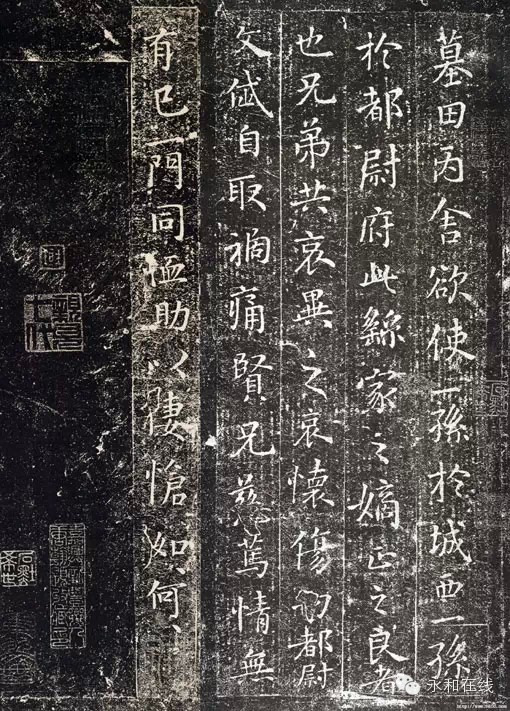 墓田丙舍欲使一孫於城西一孫
於都尉府此繇家之嫡正之良者
也兄弟共哀異之哀懷傷切都尉
文岱自取禍痛賢兄慈篤情無
有已一門同恤助以悽愴如何
永和在线